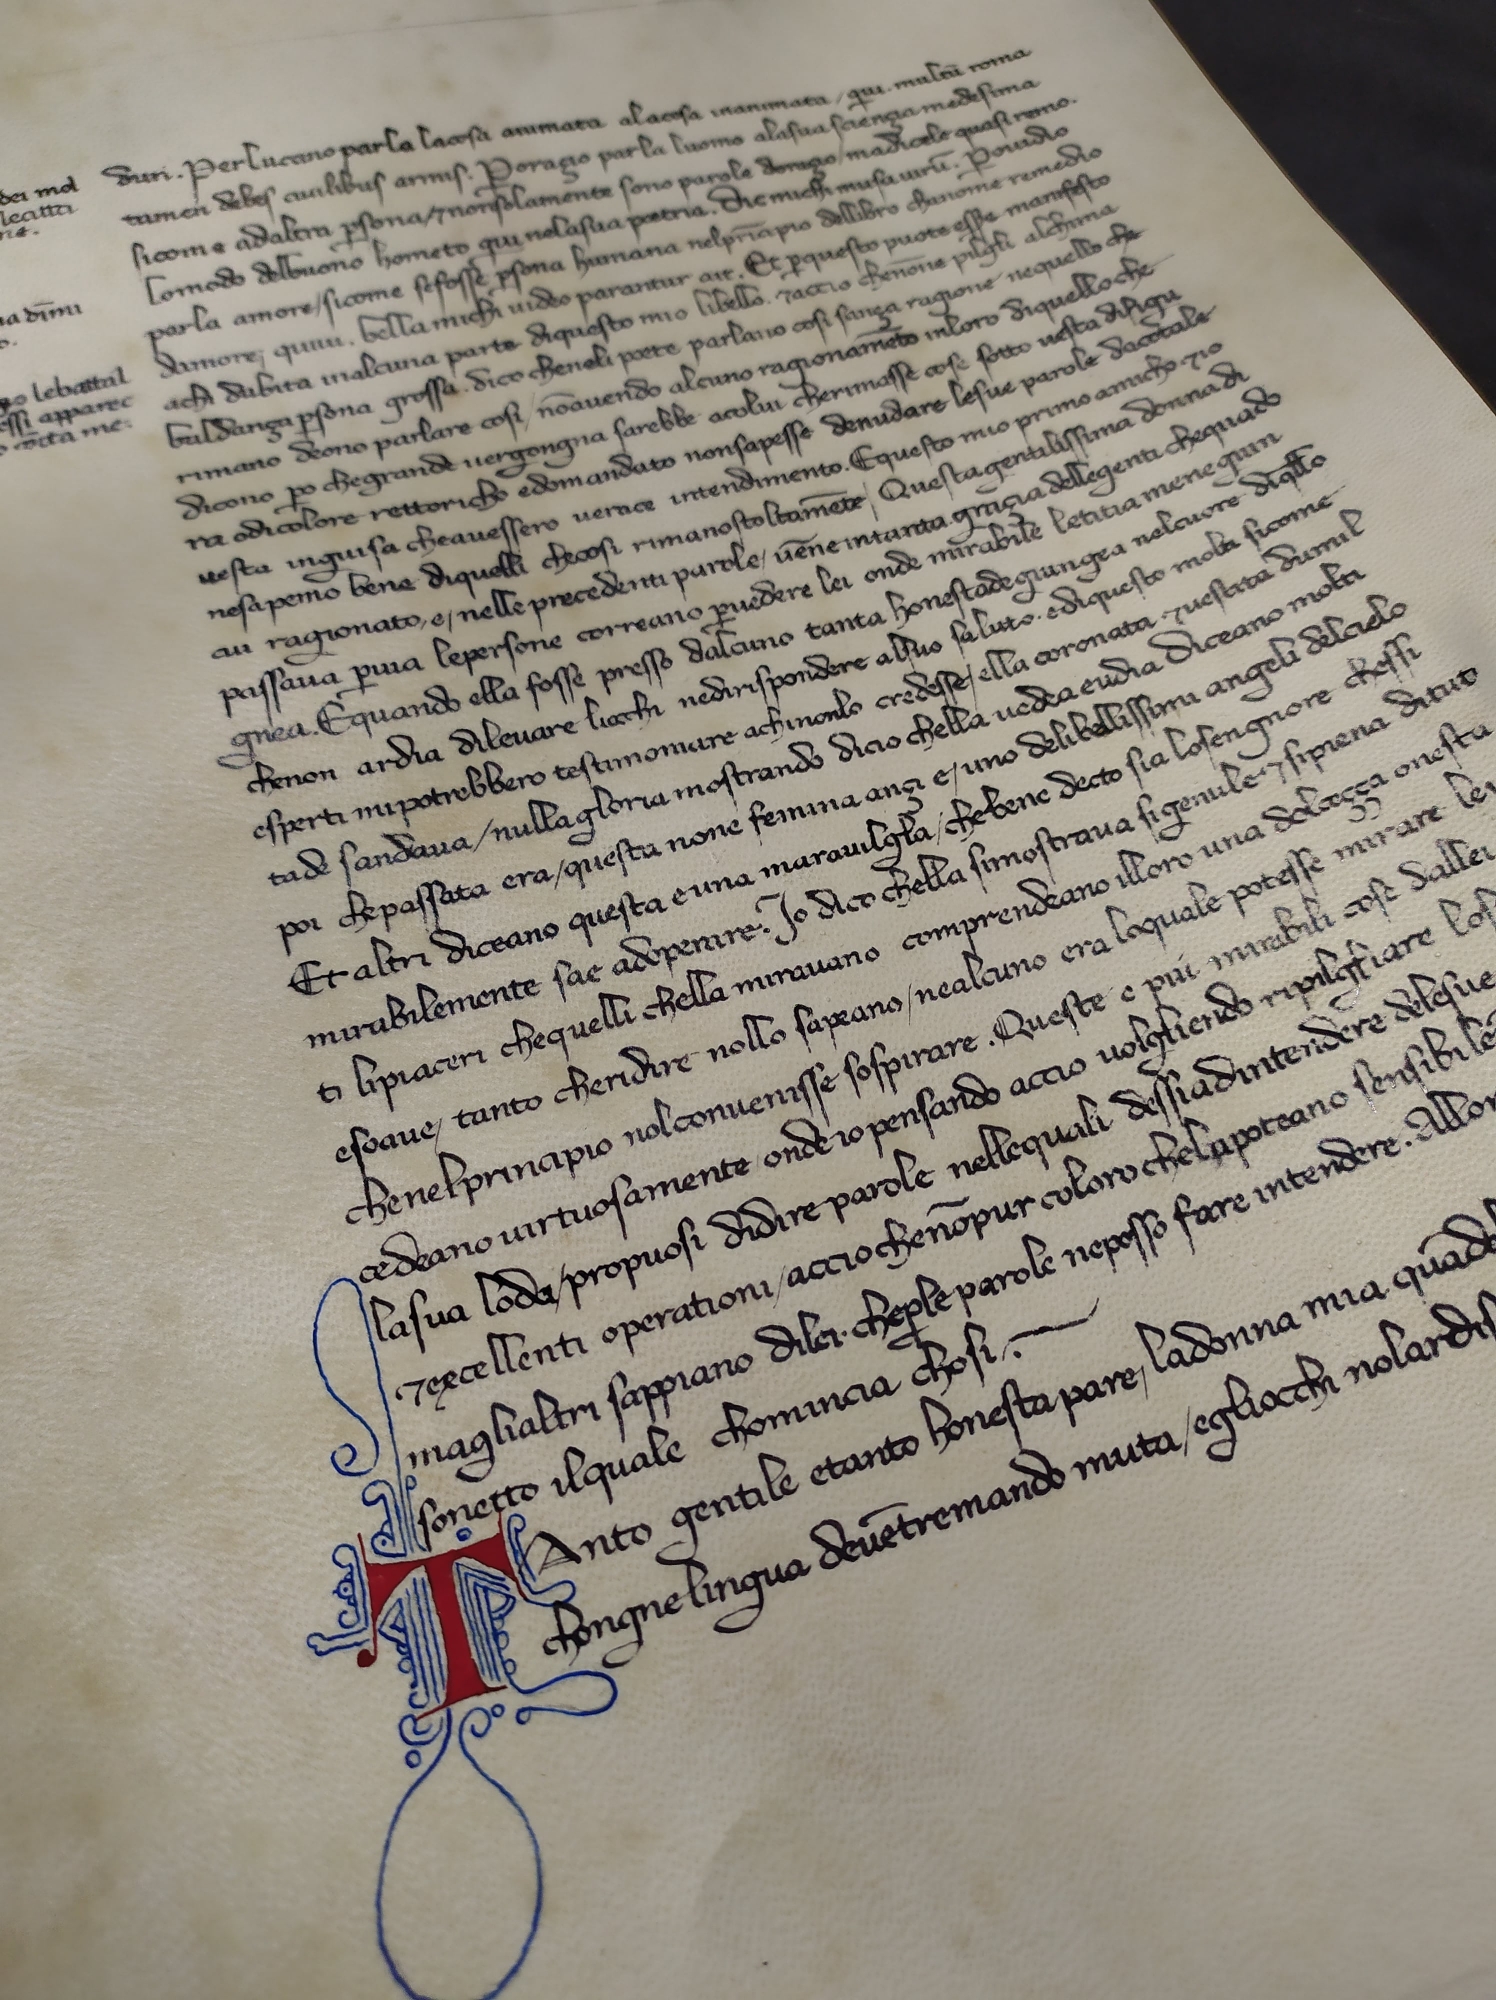 dei mol
lecitti
ne.
na dīmi
o.
lebattal
essi apparec
cōtta me:
duri. Per lucano parla lacosa animata alacosa inanimata / qui. multū roma
tamen debes ciuilibus armis. P oragio parla luomo alasua scienza medesima
sicome adaltra psona / ⁊ nonsolamente sono parole doragio / madicele quasi remo.
lomodo delbuono homero qui nelasua poetria. Dic michi musa uirū. P ouidio
parla amore / sicome sefosse psona humana nelprīcipio dellibro chanome remedio
damore / quiui. bella michi uideo parantur ait. Et pquesto puote essere manifesto
achi dubita inalcuna parte diquesto mio libello. ⁊ accio chenōne pilgli alchuna
baldança psona grossa. dico cheneli poete parlano cosi sança ragione nequello che
rimano deono parlare cosi / nōauendo alcuno ragionamēto inloro diquello che
dicono po chegrande uergongna sarebbe acolui cherimasse cose sotto uesta difigu
ra odicolore rettoricho edomandato nonsapesse denudare lesue parole dacotale
uesta inguisa cheauessero uerace intendimento. Equesto mio primo amicho. ⁊ io
nesapemo bene diquelli checosi rimano stoltamēte / Questa gentilissima donna di
cui ragionato, e / nelle precedenti parole / uēne intanta graçia dellegenti chequādo
passaua puia lepersone correano puedere lei onde mirabile letitia menegiun
gnea. Equando ella fosse presso dalcuno tanta honestade giungea nelcuore dīqllo
chenon ardia dileuare liocchi nedirispondere alsuo saluto. ediquesto molti sicome
esperti mipotrebbero testimoniare achinonlo credesse / ella coronata ⁊ uestata dumil
tade sandaua / nullagloria mostrando dicio chella uedea eudia Diceano molti
poi chepassata era / questa none femina ançi e / uno delibellissimi angeli delcielo
Et altri diceano questa e una marauilglia / chebene decto sia losengnore chessi
mirabilemente sae adoperare. Io dico chella simostraua sigenule ⁊ sipiena ditut
ti lipiaceri chequelli chella mirauano comprendeano illoro una dolceçça onesta
esoaue / tanto cheridire nollo sapeano / nealcuno era loquale potesse mirare lei
chenelprincipio nolconuenisse sospirare. Queste e piu mirabili cose dallei
cedeano uirtuosamente ondeio pensando accio uolgliendo ripilgliare
lasua loda / propuosi didire parole nellequali dessi adintendere delesue
⁊ excellenti operationi / accio chenōpur coloro chelapoteano sensibile
maglialtri sappiano dilei. cheple parole neposso fare intendere. Allor
sonetto ilquale chomincia chosi.
TAnto gentile etanto honesta pare / ladonna mia quādel
chongne lingua deuētremando muta / egliocchi nolardis